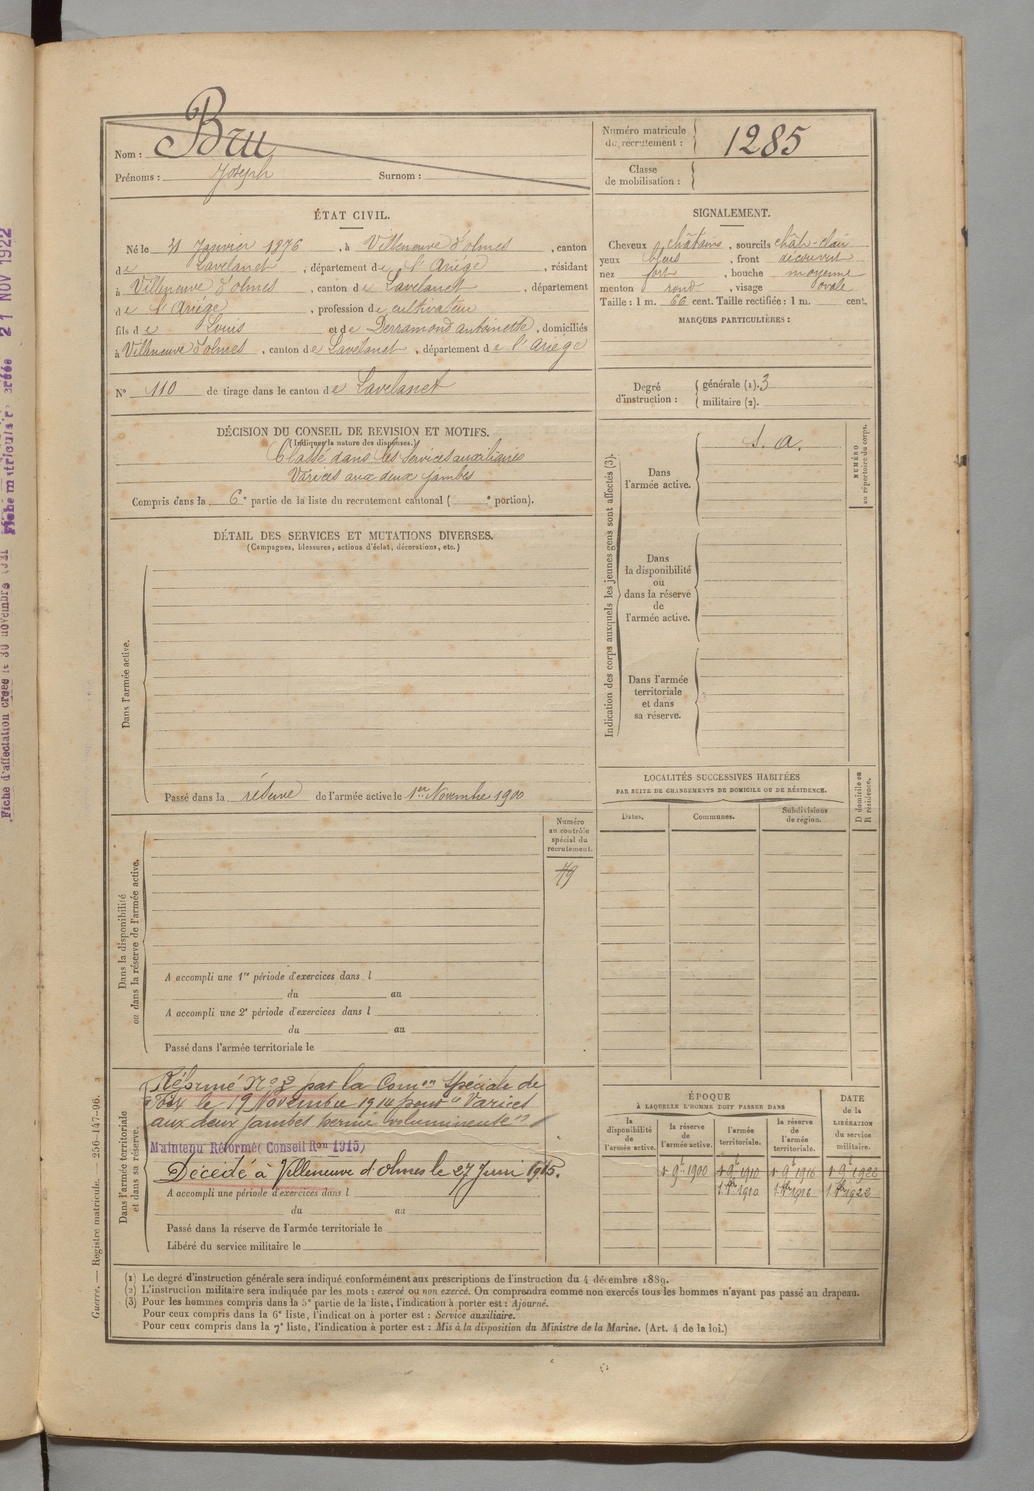 Nom : Bru
Prénoms : Joseph Surnom :
Numéro matricule du recrutement : 1285
Classe de mobilisation :
ÉTAT CIVIL.
Né le 31 Janvier 1876, à Villeneuve d'olmes, canton
de Lavelanet, département de l'Ariége, résidant
à Villeneuve d'olmes, canton de Lavelanet, département
de l'Ariége, profession de cultivateur
fils de Louis et de Derramond antoinette, domiciliés
à Villeneuve d'olmes, canton de Lavelanet, département de l'Ariége
N° 110 de tirage dans le canton de Lavelanet
SIGNALEMENT.
Cheveux châtains, sourcils chât-clair
yeux bleus, front découvert
nez fort, bouche moyenne
menton rond, visage ovale
Taille : 1 m. 66 cent. Taille rectifiée : 1 m. cent.
MARQUES PARTICULIÈRES :
Degré d'instruction : générale (1). 3
militaire (2).
DÉCISION DU CONSEIL DE REVISION ET MOTIFS.
(Indiquer la nature des dispenses.)
Classé dans les services auxiliaires
Varices aux deux jambes
Compris dans la 6e partie de la liste du recrutement cantonal ( e portion).
DÉTAIL DES SERVICES ET MUTATIONS DIVERSES.
(Campagnes, blessures, actions d'éclat, décorations, etc.)
Dans l'armée active.
Passé dans la réserve de l'armée active le 1er Novembre 1900
Indication des corps auxquels les jeunes gens sont affectés (3).
Dans
l'armée active.
s. a.
NUMÉRO
au répertoire du corps.
Dans
la disponibilité
ou
dans la réserve
de
l'armée active.
Dans l'armée
territoriale
et dans
sa réserve.
LOCALITÉS SUCCESSIVES HABITÉES
PAR SUITE DE CHANGEMENTS DE DOMICILE OU DE RÉSIDENCE.
Dates. Communes. Subdivisions de région.
D domicile ou
R résidence.
Numéro
au contrôle
spécial du
recrutement.
79
Dans la disponibilité
ou dans la réserve de l'armée active.
A accompli une 1re période d'exercices dans l
du au
A accompli une 2e période d'exercices dans l
du au
Passé dans l'armée territoriale le
Dans l'armée territoriale
et dans sa réserve.
Réformé No 2 par la Comon Spéciale de
Foix le 19 Novembre 1914 pour "Varices
aux deux jambes hernie volumineuse"
Maintenu Réformé (Conseil Ron 1915)
Décédé à Villeneuve d'olmes le 27 Juin 1915.
A accompli une période d'exercices dans l
du au
Passé dans la réserve de l'armée territoriale le
Libéré du service militaire le
ÉPOQUE
À LAQUELLE L'HOMME DOIT PASSER DANS
la disponibilité de l'armée active.
la réserve de l'armée active.
l'armée territoriale.
la réserve de l'armée territoriale.
DATE de la LIBÉRATION du service militaire.
1 9bre 1900 1 9bre 1910 1 9bre 1916 1 9bre 1922
1 8bre 1910 1 8bre 1916 1 8bre 1922
(1) Le degré d'instruction générale sera indiqué conformément aux prescriptions de l'instruction du 4 décembre 1889.
(2) L'instruction militaire sera indiquée par les mots : exercé ou non exercé. On comprendra comme non exercés tous les hommes n'ayant pas passé au drapeau.
(3) Pour les hommes compris dans la 5e partie de la liste, l'indication à porter est : Ajourné.
Pour ceux compris dans la 6e liste, l'indication à porter est : Service auxiliaire.
Pour ceux compris dans la 7e liste, l'indication à porter est : Mis à la disposition du Ministre de la Marine. (Art. 4 de la loi.)
Guerre. — Registre matricule. 256-147-96.
Fiche matriculaire créée 21 NOV 1922
Fiche d'affectation créée le 30 novembre